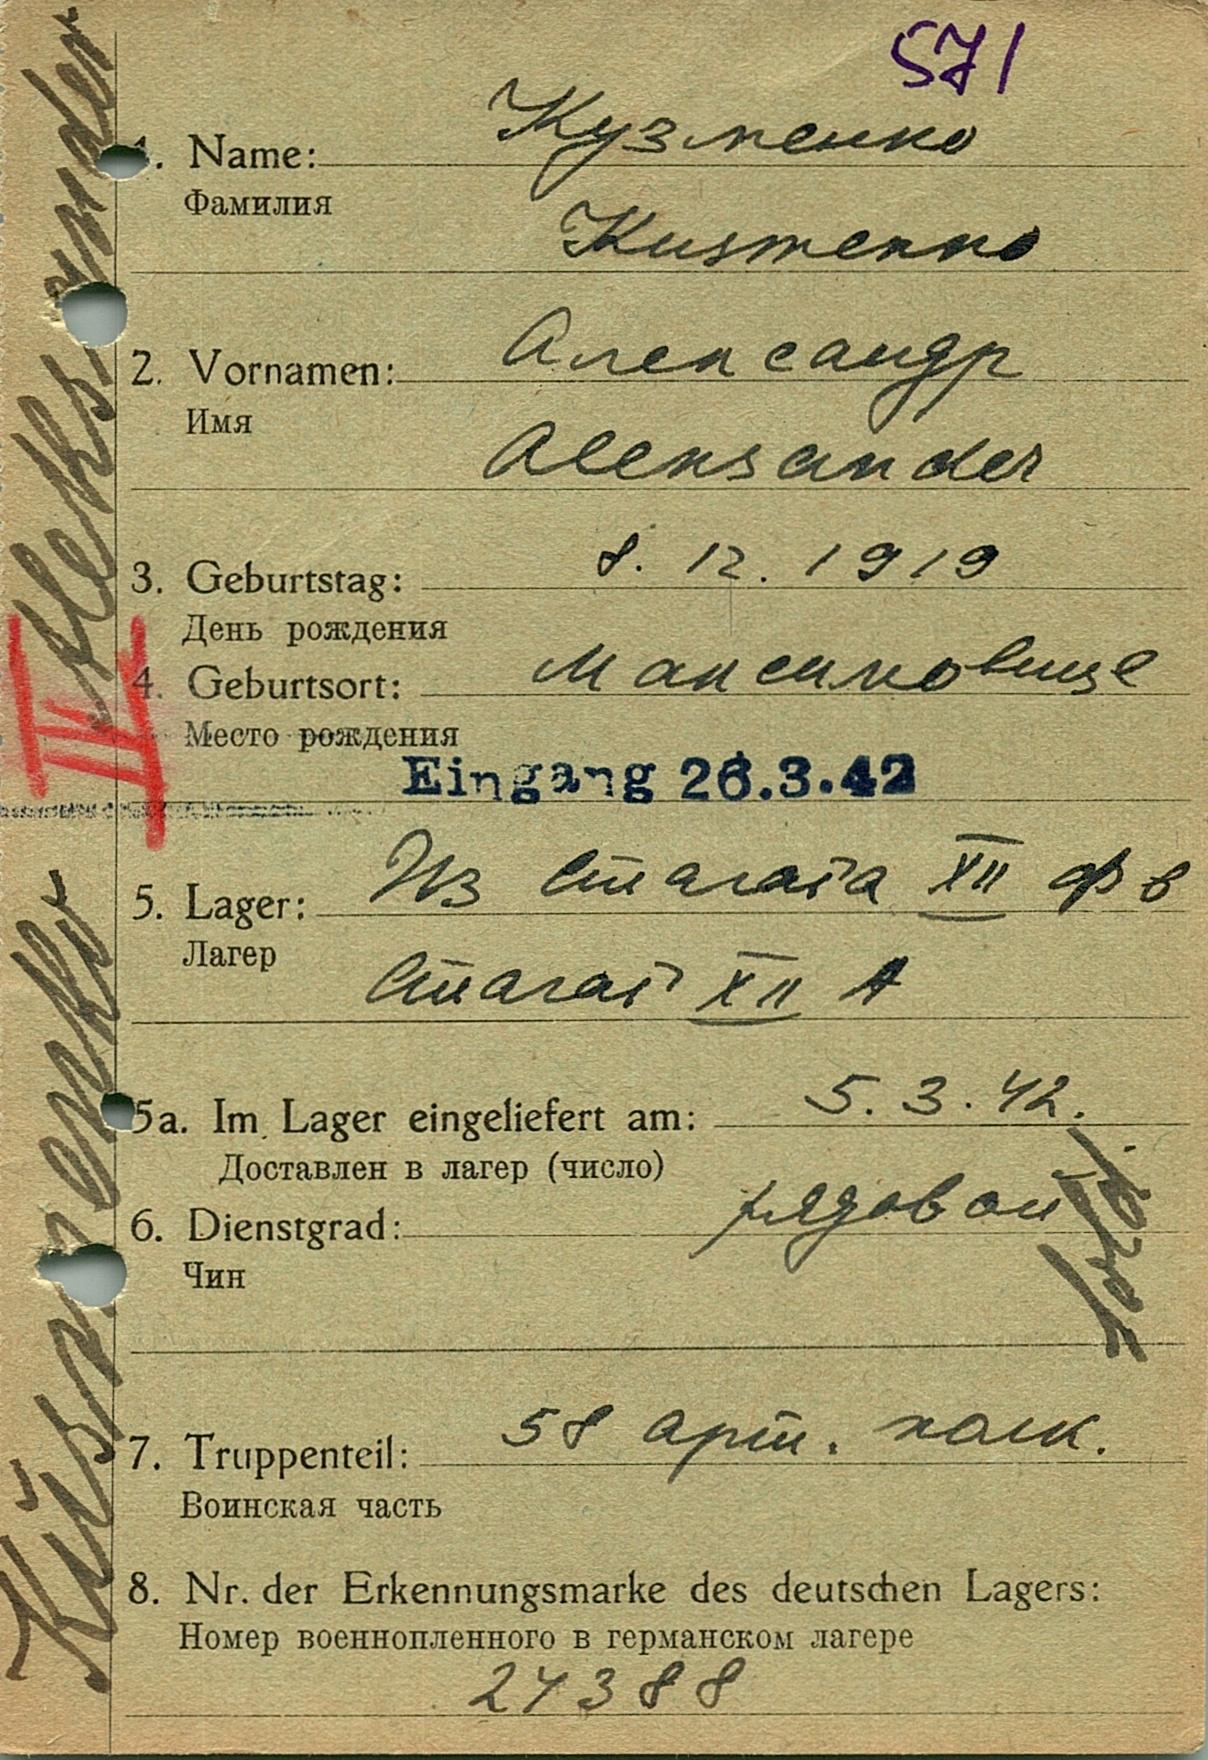 571
1. Name: Кузменко
Фамилия
Kusmenko
2. Vornamen: Александр
Имя
Aleksander
3. Geburtstag: 8. 12. 1919
День рождения
4. Geburtsort:
Место рождения
Eingang 26.3.42
5. Lager: Из Сталага XII ф в
Лагер
Сталаг XII А
5a. Im Lager eingeliefert am: 5.3.42.
Доставлен в лагер (число)
6. Dienstgrad: рядовой
Чин
7. Truppenteil: 58 арт. полк.
Воинская часть
8. Nr. der Erkennungsmarke des deutschen Lagers:
Номер военнопленного в германском лагере
24388
Küsmenko Aleksander